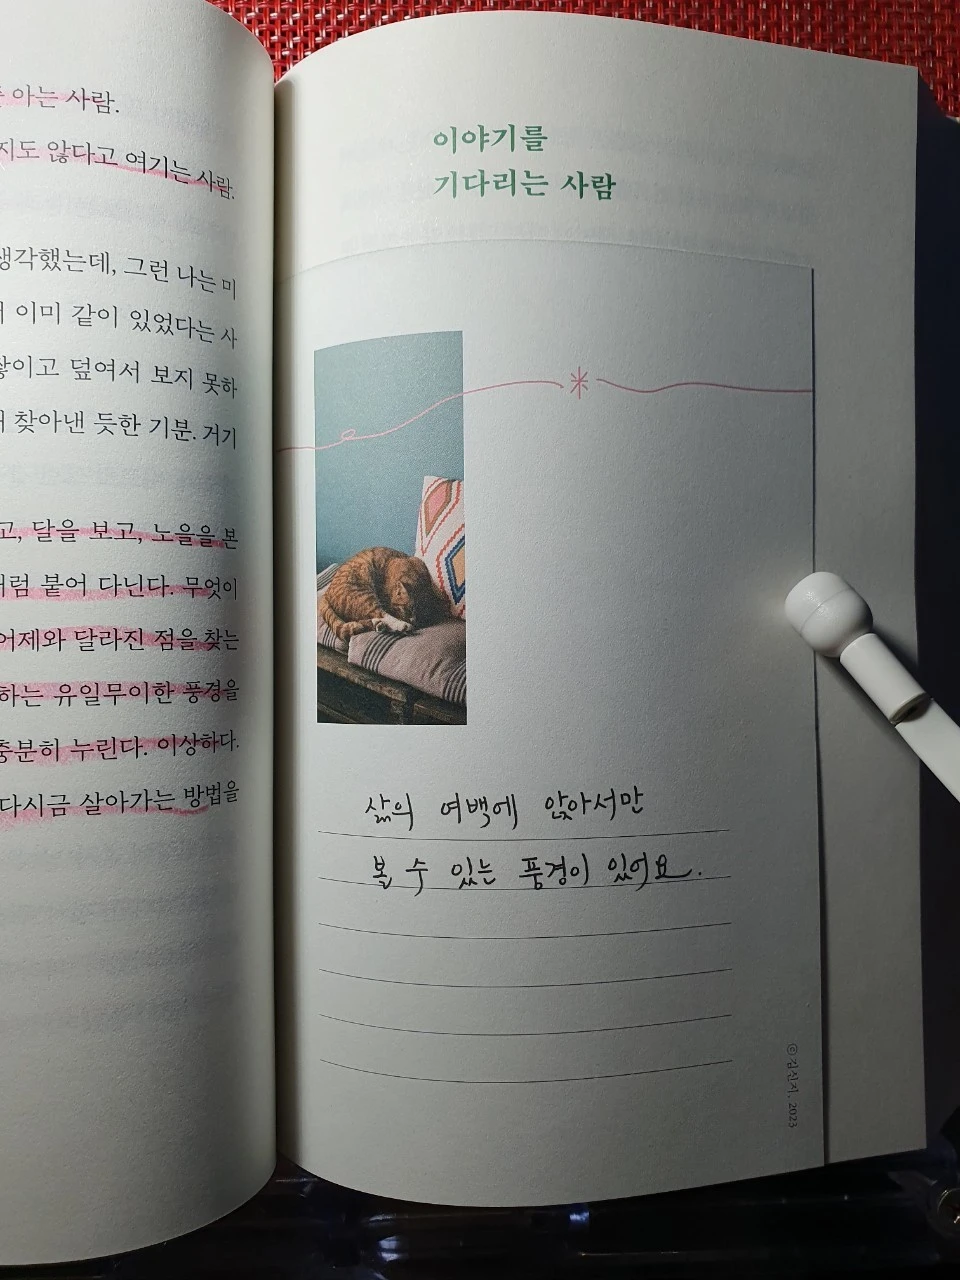 아는 사람.
않다고 여기는 사람.
생각했는데, 그런 나는 미
이미 같이 있었다는 사
쌓이고 덮여서 보지 못하
찾아낸 듯한 기분. 거기
고, 달을 보고, 노을을 본
처럼 붙어 다닌다. 무엇이
어제와 달라진 점을 찾는
하는 유일무이한 풍경을
충분히 누린다. 이상하다.
다시금 살아가는 방법을
이야기를
기다리는 사람
삶의 여백에 앉아서만
볼 수 있는 풍경이 있어요.
©김신지, 2023